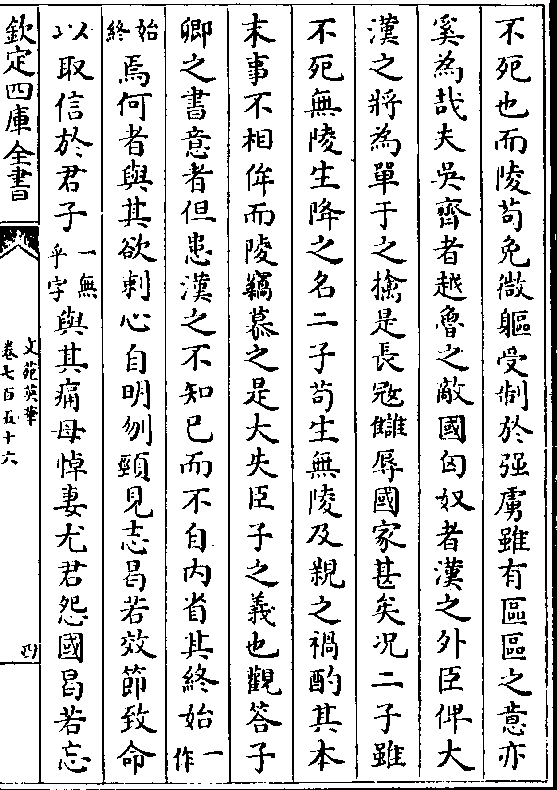 不死也而陵苟免微軀受制於强虜雖有區區之意亦
奚為哉夫吳齊者越魯之敵國匈奴者漢之外臣俾大
漢之將為單于之擒是長寇讎辱國家甚矣况二子雖
不死無陵生降之名二子苟生無陵及親之禍酌其本
末事不相侔而陵竊慕之是大失臣子之義也觀答子
卿之書意者但患漢之不知已而不自内省其終始一作
始終焉何者與其欲刺心自明刎頸見志曷若效節致命
以取信於君子一無乎字與其痛母悼妻尤君怨國曷若忘
欽定四庫全書
文苑英華
卷七百五十六
四